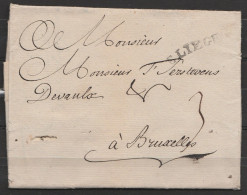 A Monsieur
LIEGE
Monsieur T'Serstevens
Devaulx
à Bruxelles